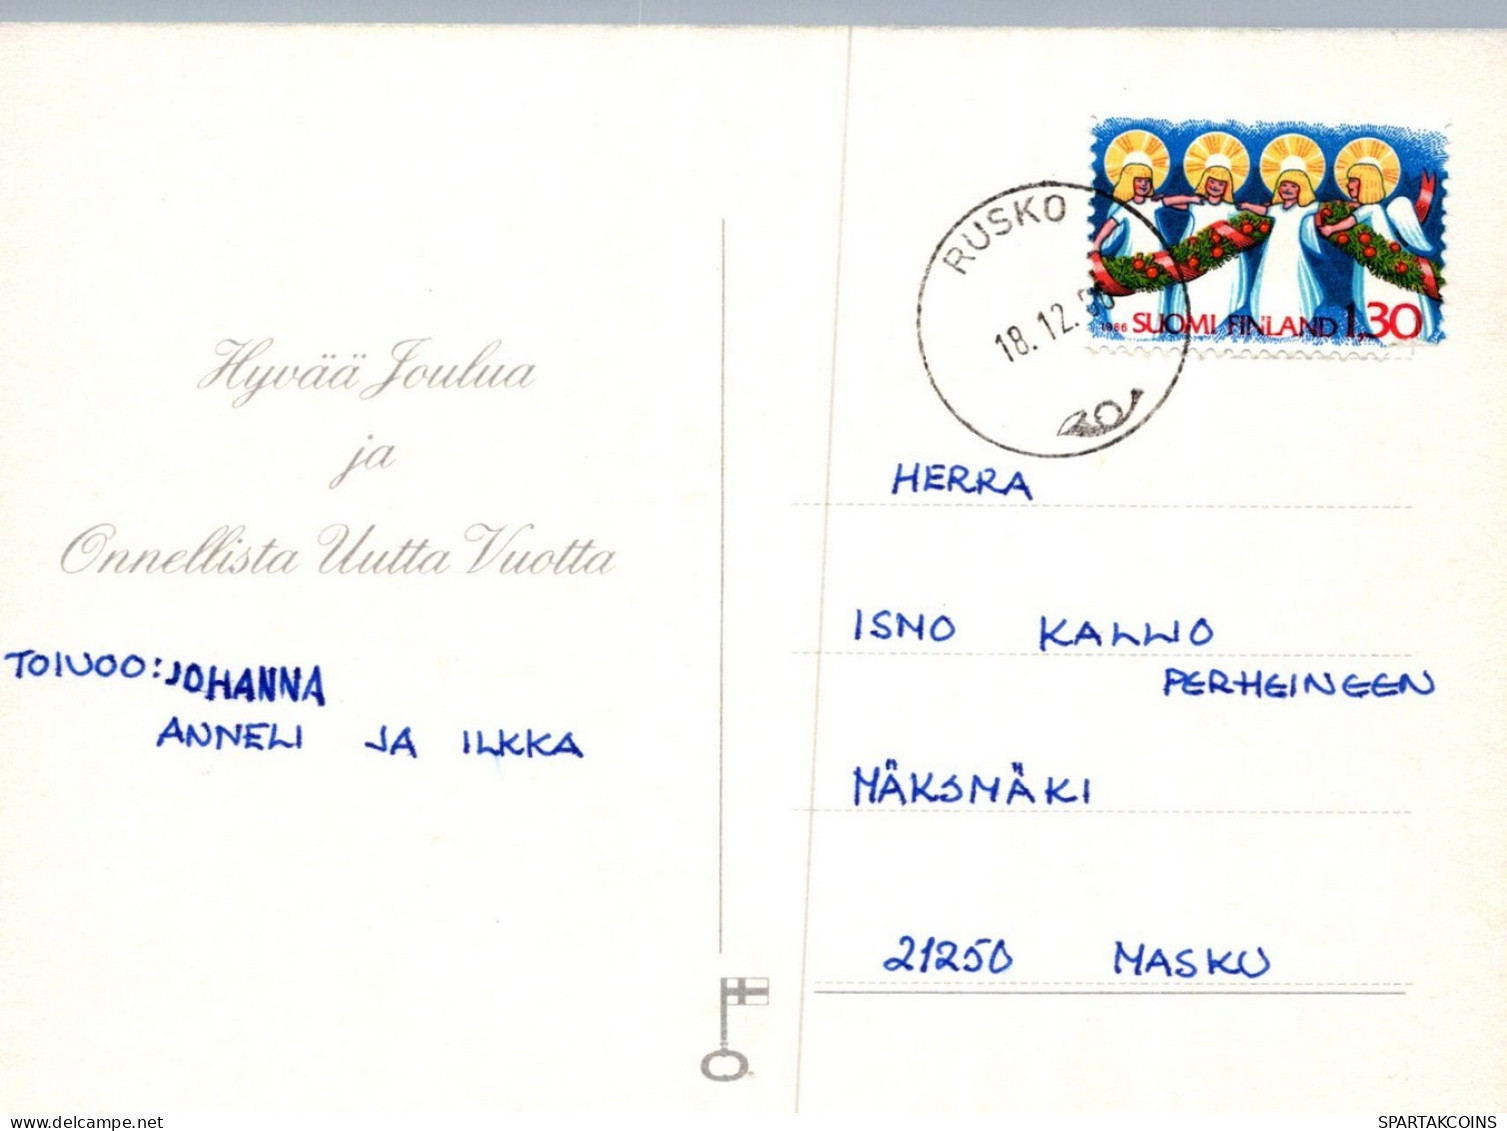 Hyvää Joulua
ja
Onnellista Uutta Vuotta
TOIVOO: JOHANNA
ANNELI JA ILKKA
RUSKO
18.12.
1986 SUOMI FINLAND 1,30
HERRA
ISMO KALLIO
PERHEINEEN
MÄKSMÄKI
21250 MASKU
delcampe.net
SPARTAKCOINS